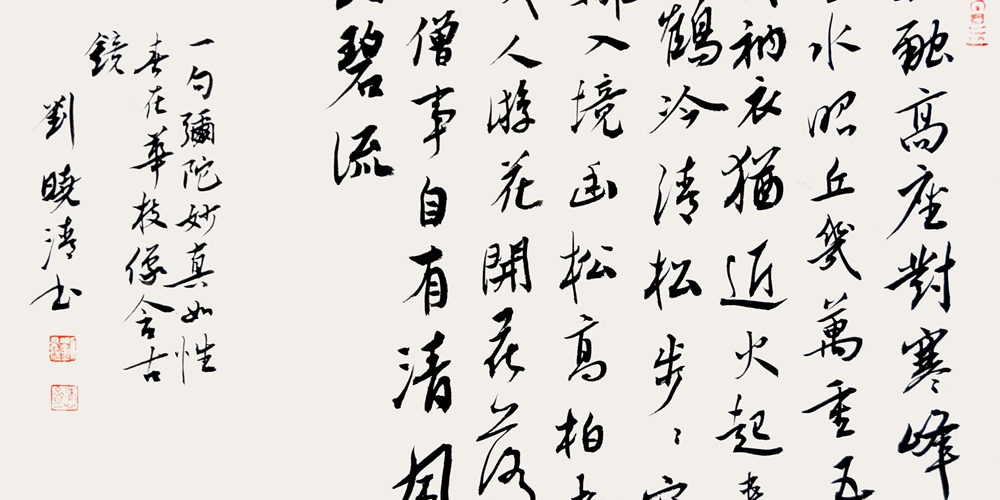 融高座對寒峰
水昭丘幾萬重五
衲衣猶近火起
鶴泠清松步〻
入境幽松高柏
人游花開花落
僧事自有清風
碧流
一句彌陀妙真如性
春在華枝像含古
鏡
劉曉清书